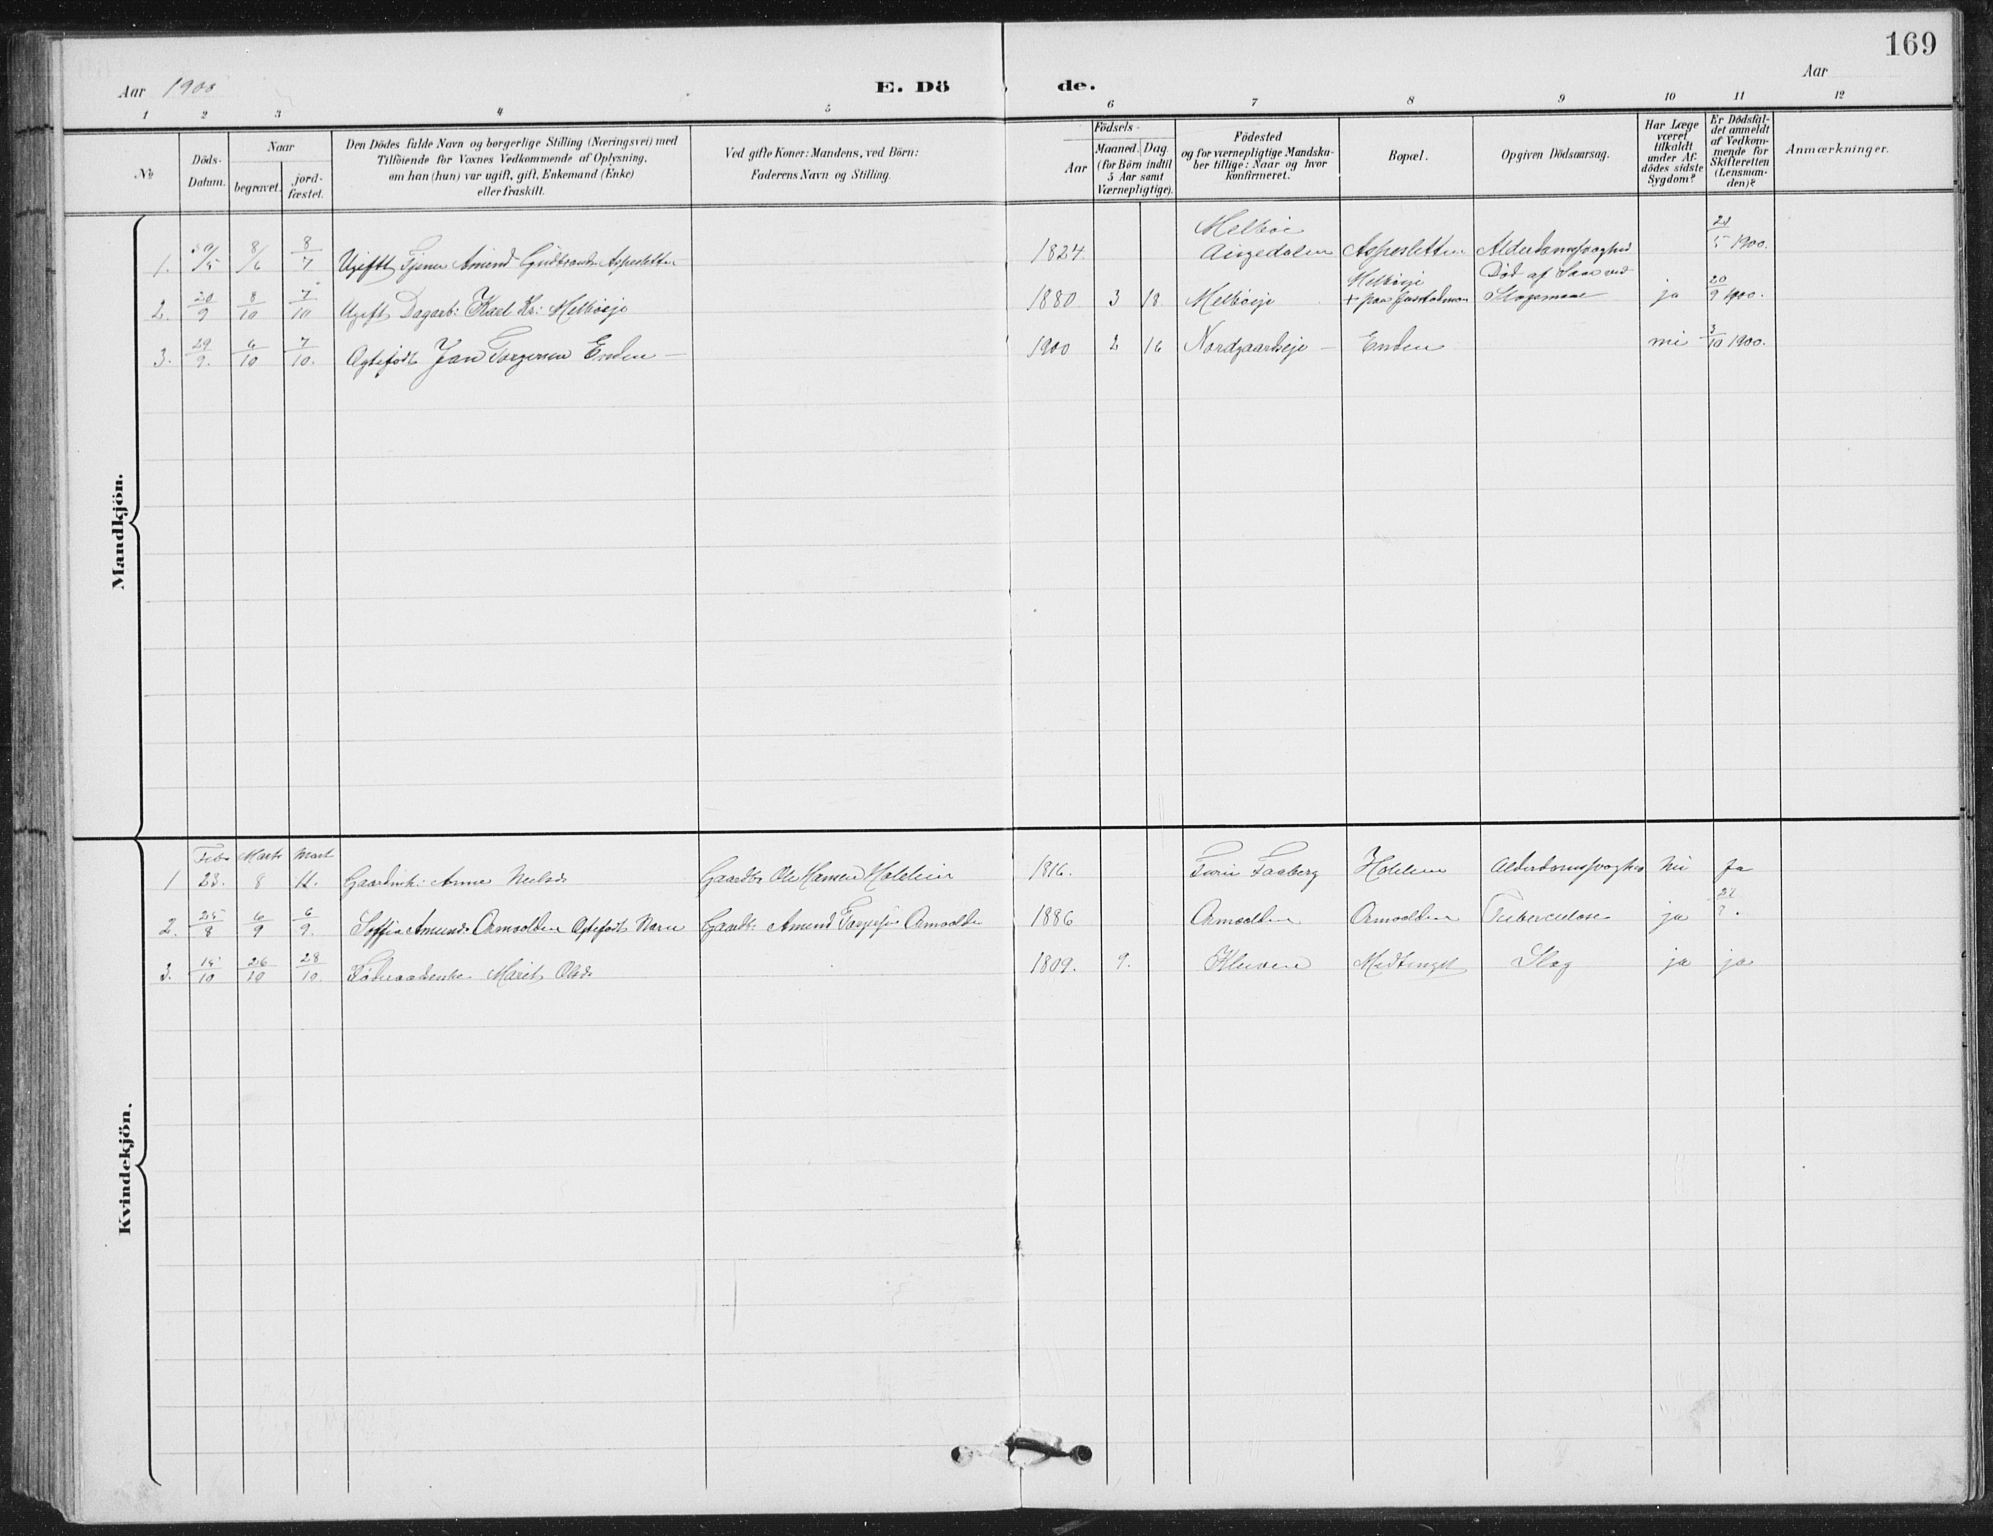 169
Aar 1900 E. Dö de. Aar
1 2 3 4 5 6 7 8 9 10 11 12
No
Döds-
Datum.
Naar
begravet.
jord-
fæstet.
Den Dödes fulde Navn og borgerlige Stilling (Næringsvei) med
Tilföiende for Voxnes Vedkommende af Oplysning,
om han (hun) var ugift, gift, Enkemand (Enke)
eller fraskilt.
Ved gifte Koner: Mandens, ved Börn:
Faderens Navn og Stilling.
Födsels-
Aar
Maaned. Dag
(for Börn indtil
5 Aar samt
Værnepligtige).
Födested
og for værnepligtige Mandska-
ber tillige: Naar og hvor
konfirmeret.
Bopæl.
Opgiven Dödsaarsag.
Har Læge
været
tilkaldt
under Af-
dödes sidste
Sygdom?
Er Dödsfal-
det anmeldt
af Vedkom-
mende for
Skifteretten
(Lensman-
den)?
Anmærkninger.
Mandkjön.
1. 30/5 8/6 8/7 Ugift Tjener Amend Gudbrands. Aspesletten 1824 Alderdomssvaghed 1900.
2. 20/9 8/10 7/10 Ugift Dagarb: Karl Kr: Melböeje 1880 3 18 Melböeje Melböeje Död af Saar ved Slagsmaal ja 20/9 1900.
3. 29/9. 6/10 7/10. Ægtefödt Jan Torgersen Enden 1900 2 16 Nordgaardseje Enden nei 3/10 1900.
Kvindekjön.
Feb. Marts Mart
1 23. 8 11. Gaardmk: Anne Neelsd. Gaardbr. Ole Hansen Holdlien 1816. Faaberg Alderdomssvaghed Nei Ja
2. 25/8 6/9 6/9. Soffie Amunds. Ormsolben Ægtefödt Barn Gaardb. Amend Ormsolben 1886 Ormsolben Ormsolben Tuberculose ja
3. 14/10 26/10 28/10. Föderaadenke Marit Olsd. 1809. 9. Kluven Midtenget Slag ja ja